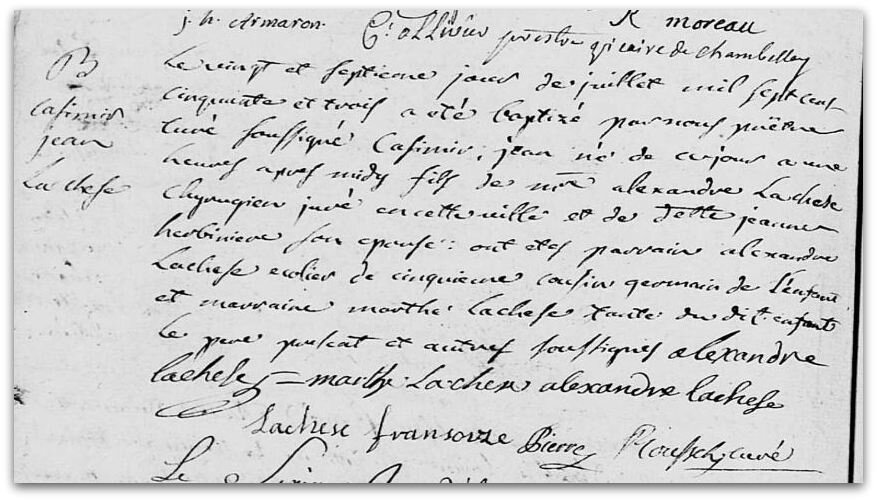 j. h. Armaron. R moreau
C. ollivier prestre vicaire de chambellay
B
Casimir
jean
Lachese
Le vingt et septieme jour de juillet mil sept cent
cinquante et trois a été baptizé par nous prêtre
curé soussigné Casimir, jean né de ce jour a une
heures apres midy fils de mre alexandre Lachese
chyrugien juré en cette ville et de delle jeanne
herbiniere son epouse : ont etes parrain alexandre
Lachese ecolier de cinquieme cousin germain de L'enfant
et marraine marthe Lachese tante du dit enfant
le pere present et autres soussignes alexandre
lachese = marthe Lachese alexandre lachese
Lachese fransoize Pierre curé
Le